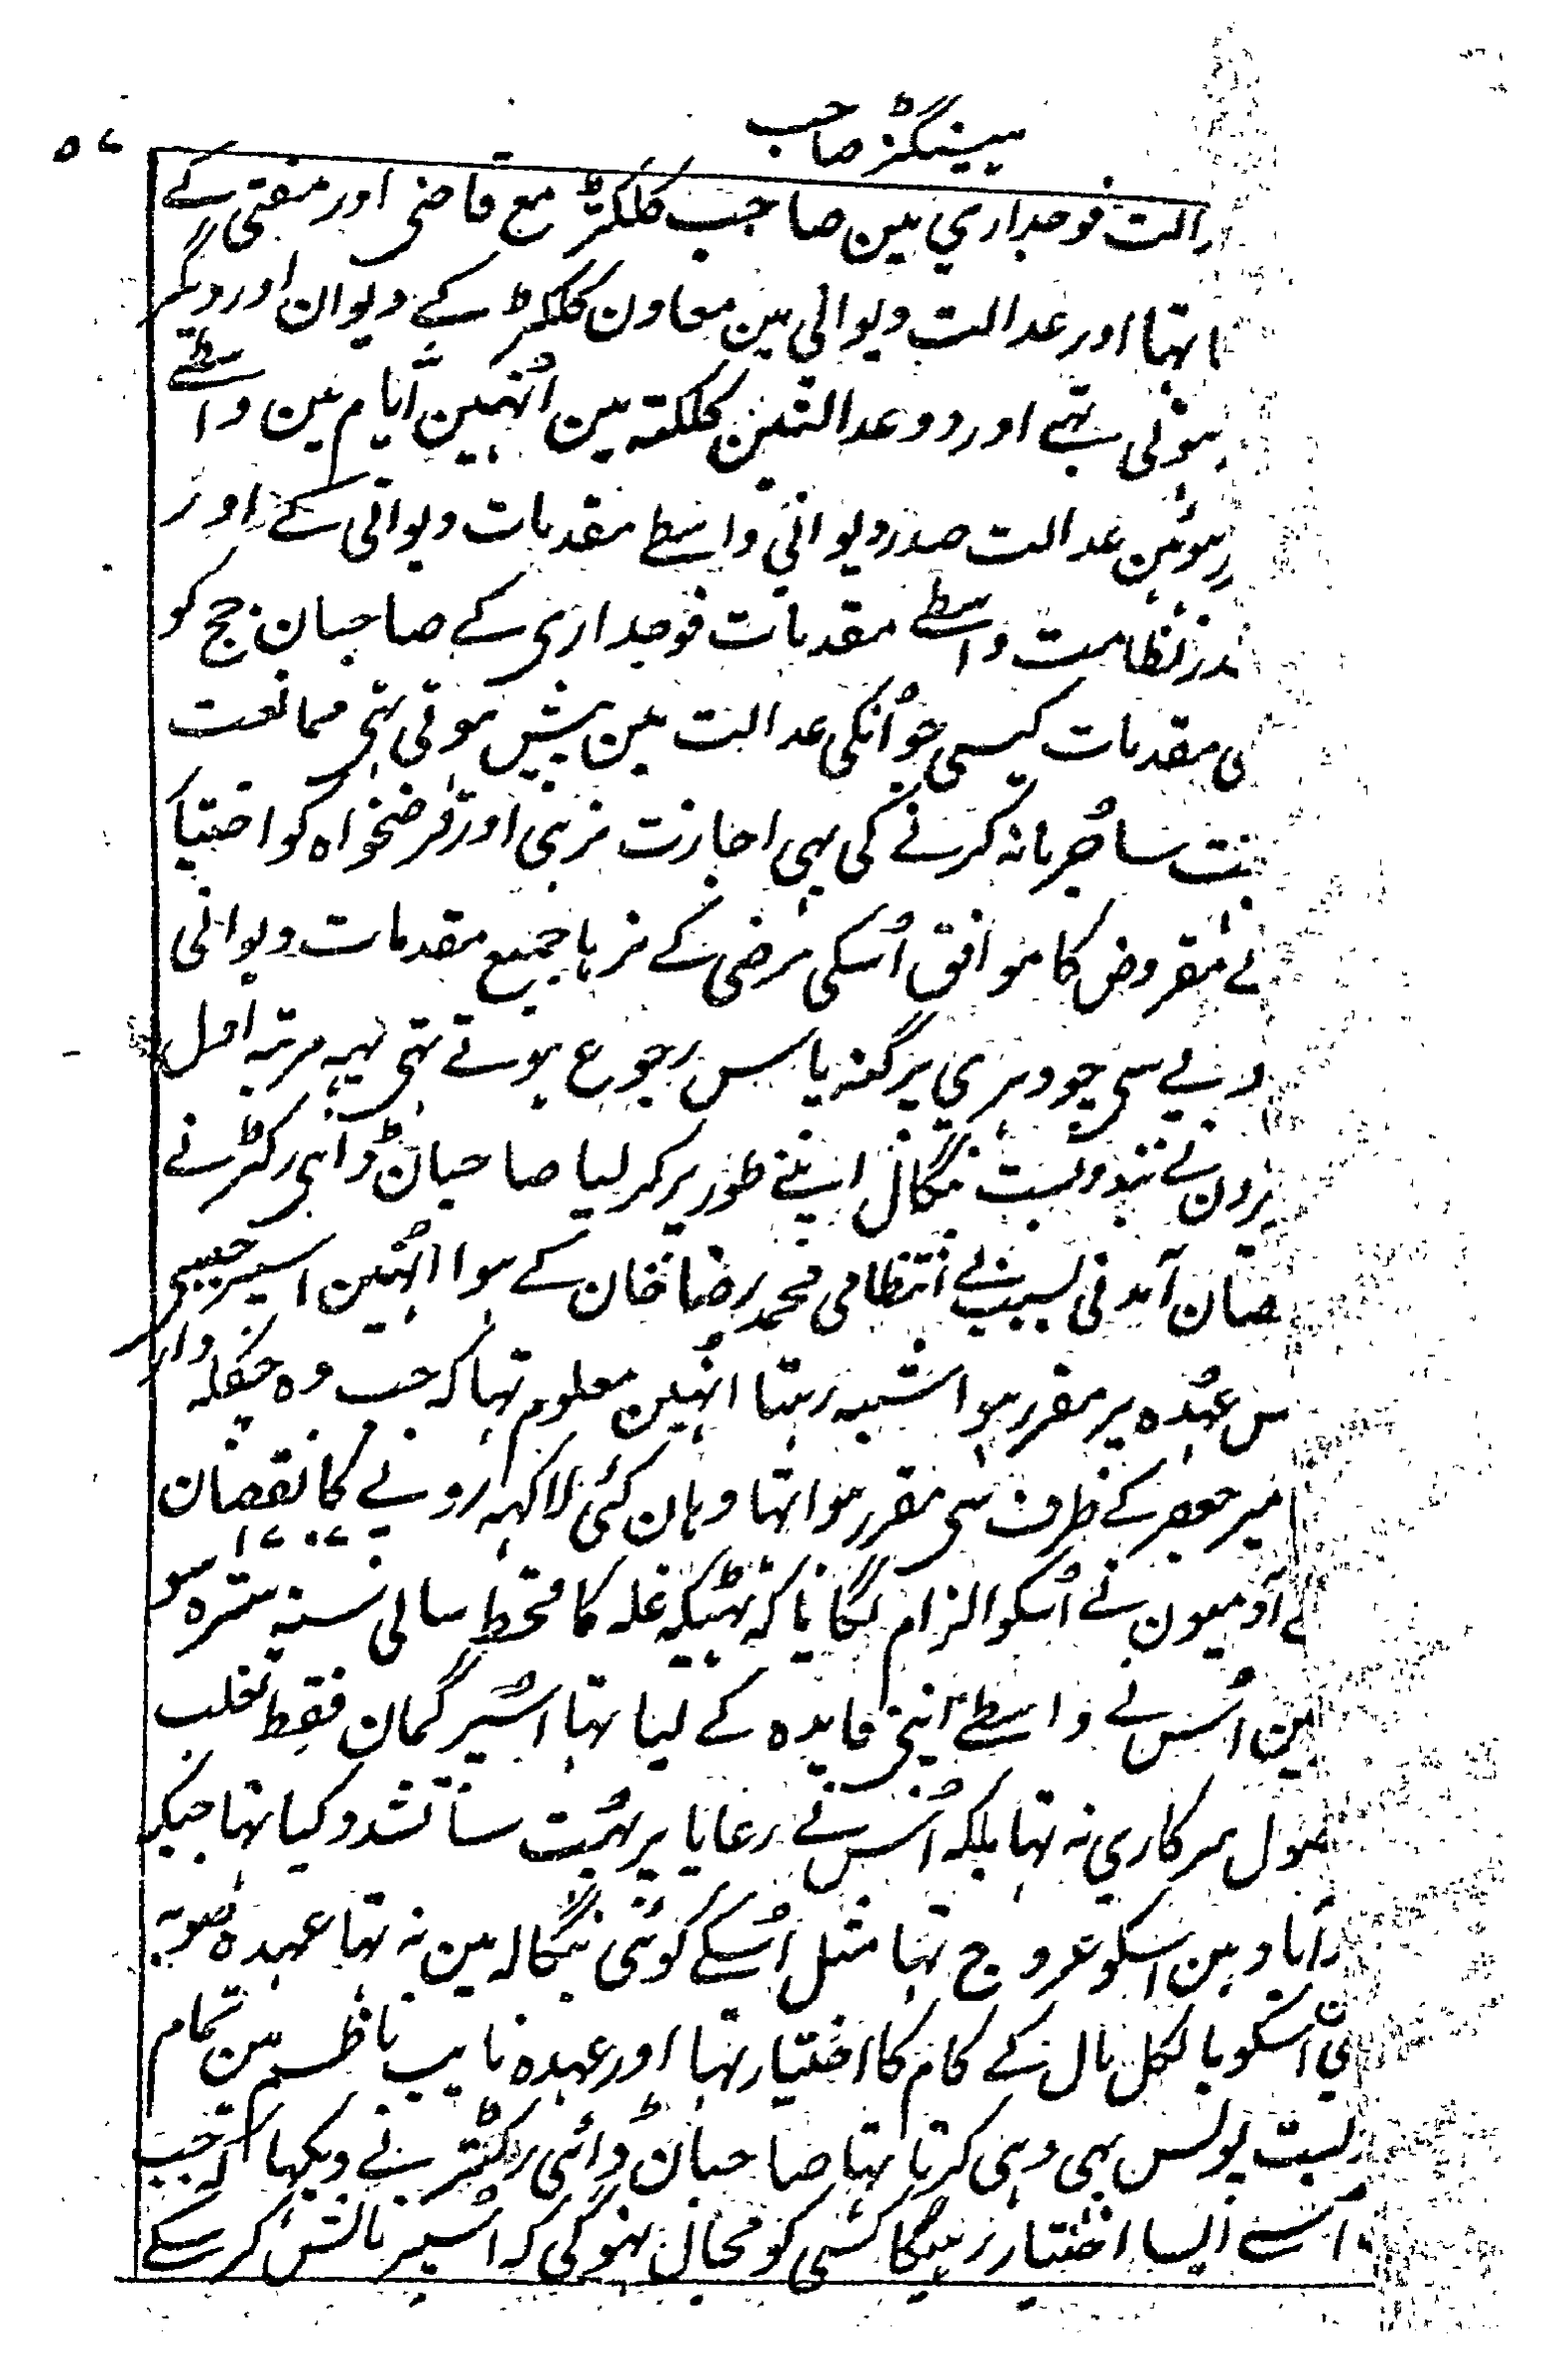 ہیینگٹز صاحب
۵۷
دالت فوجداري مین صاحب کلکٹر مع قاضی اور مفتی کے
تہا اور عدالت دیوانی مین معاون کلکٹر کے دیوان اور دیگر
ہوتی تہے اور دو عدالتین کلکتہ مین انہین ایام مین واسطے
ہوئین عدالت صدر دیوانی واسطے مقدمات دیوانی کے اور
نظامت واسطے مقدمات فوجداری کے صاحبان جج کو
مقدمات کیسی جو اُنکی عدالت مین پیش ہوتی تہی ممانعت
سا جرمانہ کرنے کی بہی اجازت نرہی اور قرضخواہ کو اختیا
مقروض کا موافق اُسکی مرضی کے نرہا جمیع مقدمات دیوانی
سی چودہری پرگنہ پاس رجوع ہوتے تہی یہہ مرتبہ اول
نے بندوبست بنگال اپنے طور پر کر لیا صاحبان ڈائی رکٹر نے
آمدنی بسبب بے انتظامی محمد رضا خان کے ہوا انہین اسپر جیسی
س عہدہ پر مقرر ہوا شبہہ رہتا انہین معلوم تہا کہ جب وہ چکلہ دار
میر جعفر کے طرف سی مقرر ہوا تہا وہان کئی لاکہہ روپے کا نقصان
آدمیون نے اُسکو الزام لگایا کہ ٹہیکہ غلہ کا قحط سالی سنہ سترہ سو
۱۷۷۰
مین اُس نے واسطے اپنی فایدہ کے لیا تہا اسپر گمان فقط تغلب
سرکاري نہ تہا بلکہ اُس نے رعایا پر بہت سا تشدد کیا تہا جبکہ
مین اسکو عروج تہا مثل اُسکے کوئی بنگالہ مین نہ تہا عہدہ صوبہ
اسکو بالکل مال کے کام کا اختیار تہا اور عہدہ نایب ناظم مین تمام
پولس بہی وہی کرتا تہا صاحبان ڈائی رکٹر نے دیکہا کہ جب
اُسے ایسا اختیار رہیگا کسی کو مجال نہوگی کہ اُسپر نالش کر سکے